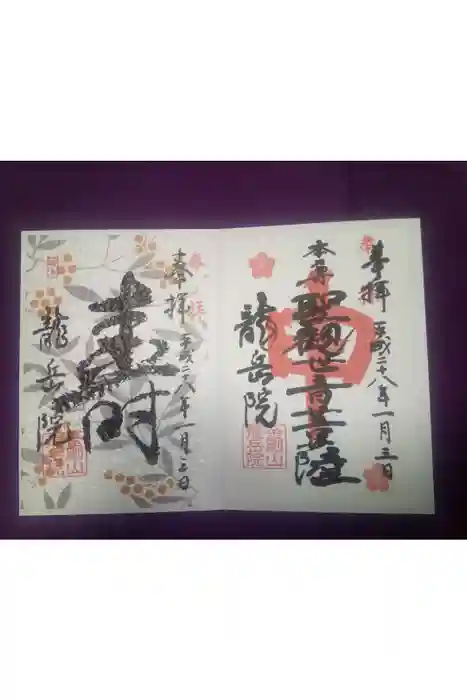 奉拝
平成二十八年一月三日
本尊
聖観世音菩薩
龍岳院
奉拝
平成二十八年一月三日
龍岳院